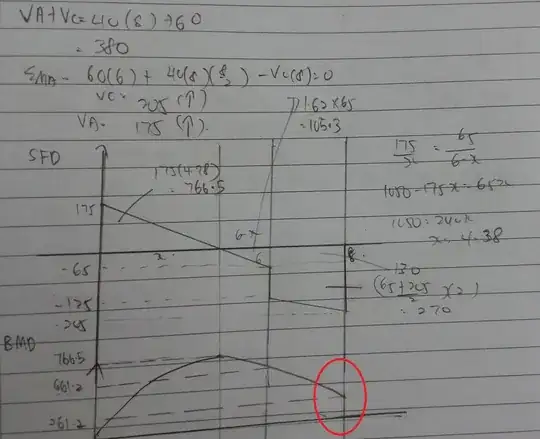 VA+VC=40(8)+60
= 380
ΣMA- 60(6) + 40(8)(8/2) -VC(8)=0
VC= 205 (↑)
VA= 175 (↑).
1.62×65
=105.3
SFD
175(4.38)
= 766.5
175/x = 65/6-x
1050-175x=65x
1050=240x
x=4.38
175
6-x
x
6
8
-65
130
-125
(65+205/2 ×2)
= 270
-205
BMD
766.5
661.2
261.2